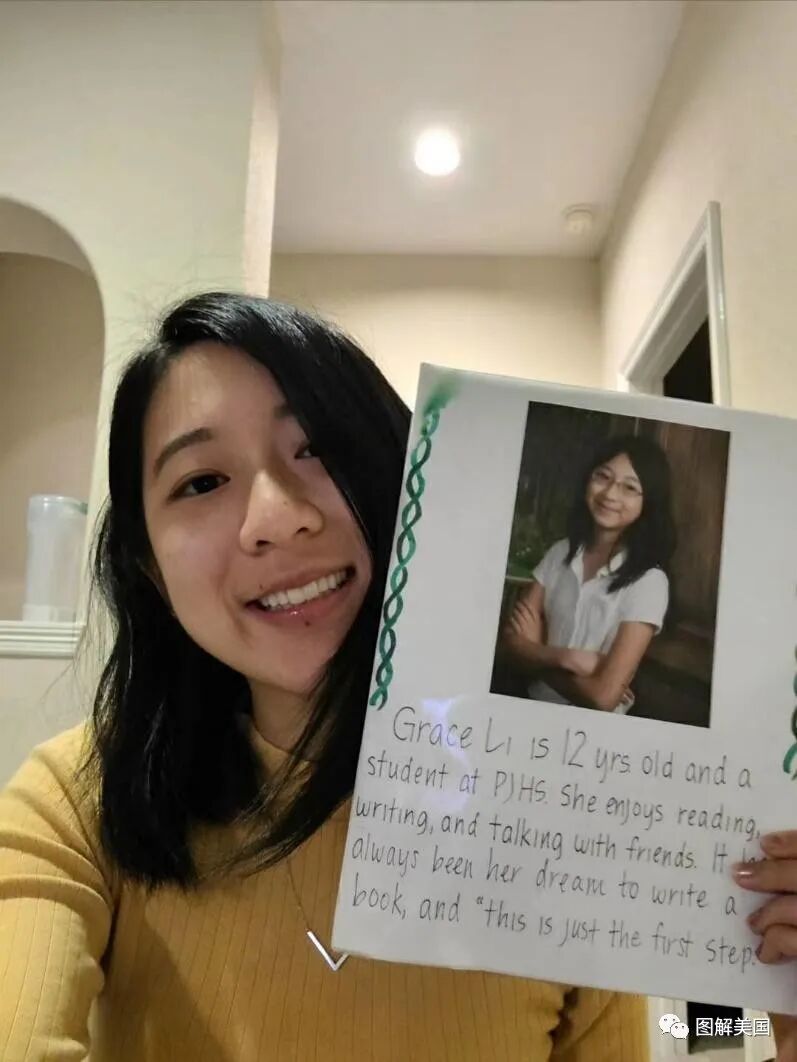 Grace Li is 12 yrs. old and a
student at PJHS. She enjoys reading,
writing, and talking with friends. It
always been her dream to write a
book, and "this is just the first step.
图解美国